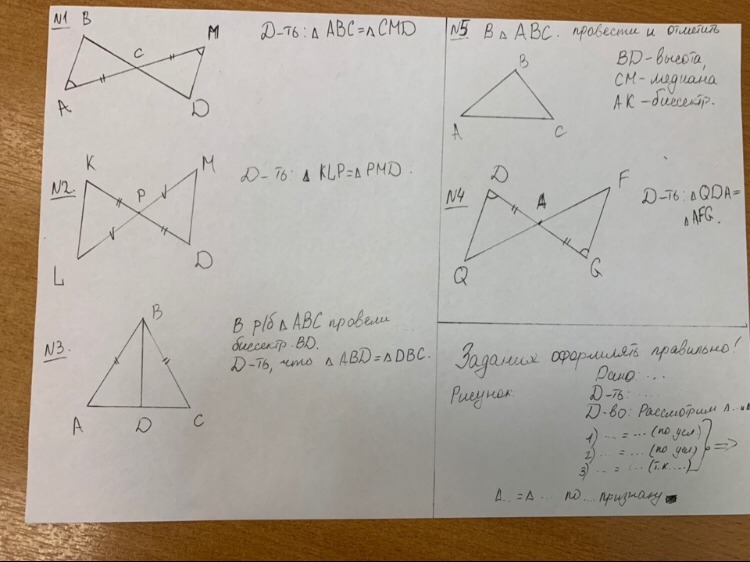 N1
B
M
C
A
D
Д-ть: Δ ABC = Δ CMD
N2.
K
M
P
L
D
Д-ть: Δ KLP = Δ PMD.
N3.
B
A
D
C
В р/б Δ ABC провели
биссектр. BD.
Д-ть, что Δ ABD = Δ DBC.
N5 В Δ ABC. провести и отметить
BD - высота,
CM - медиана
AK - биссектр.
B
A
C
N4
D
A
F
Q
G
Д-ть: Δ QDA =
Δ AFG.
Задания оформлять правильно!
Рисунок
Дано: ...
Д-ть: ....
Д-во: Рассмотрим Δ...
1) ... = ... (по усл)
2) .. = ... (по усл)
3) .. = ... (т.к....)
⇒
Δ.. = Δ ... по ... признаку